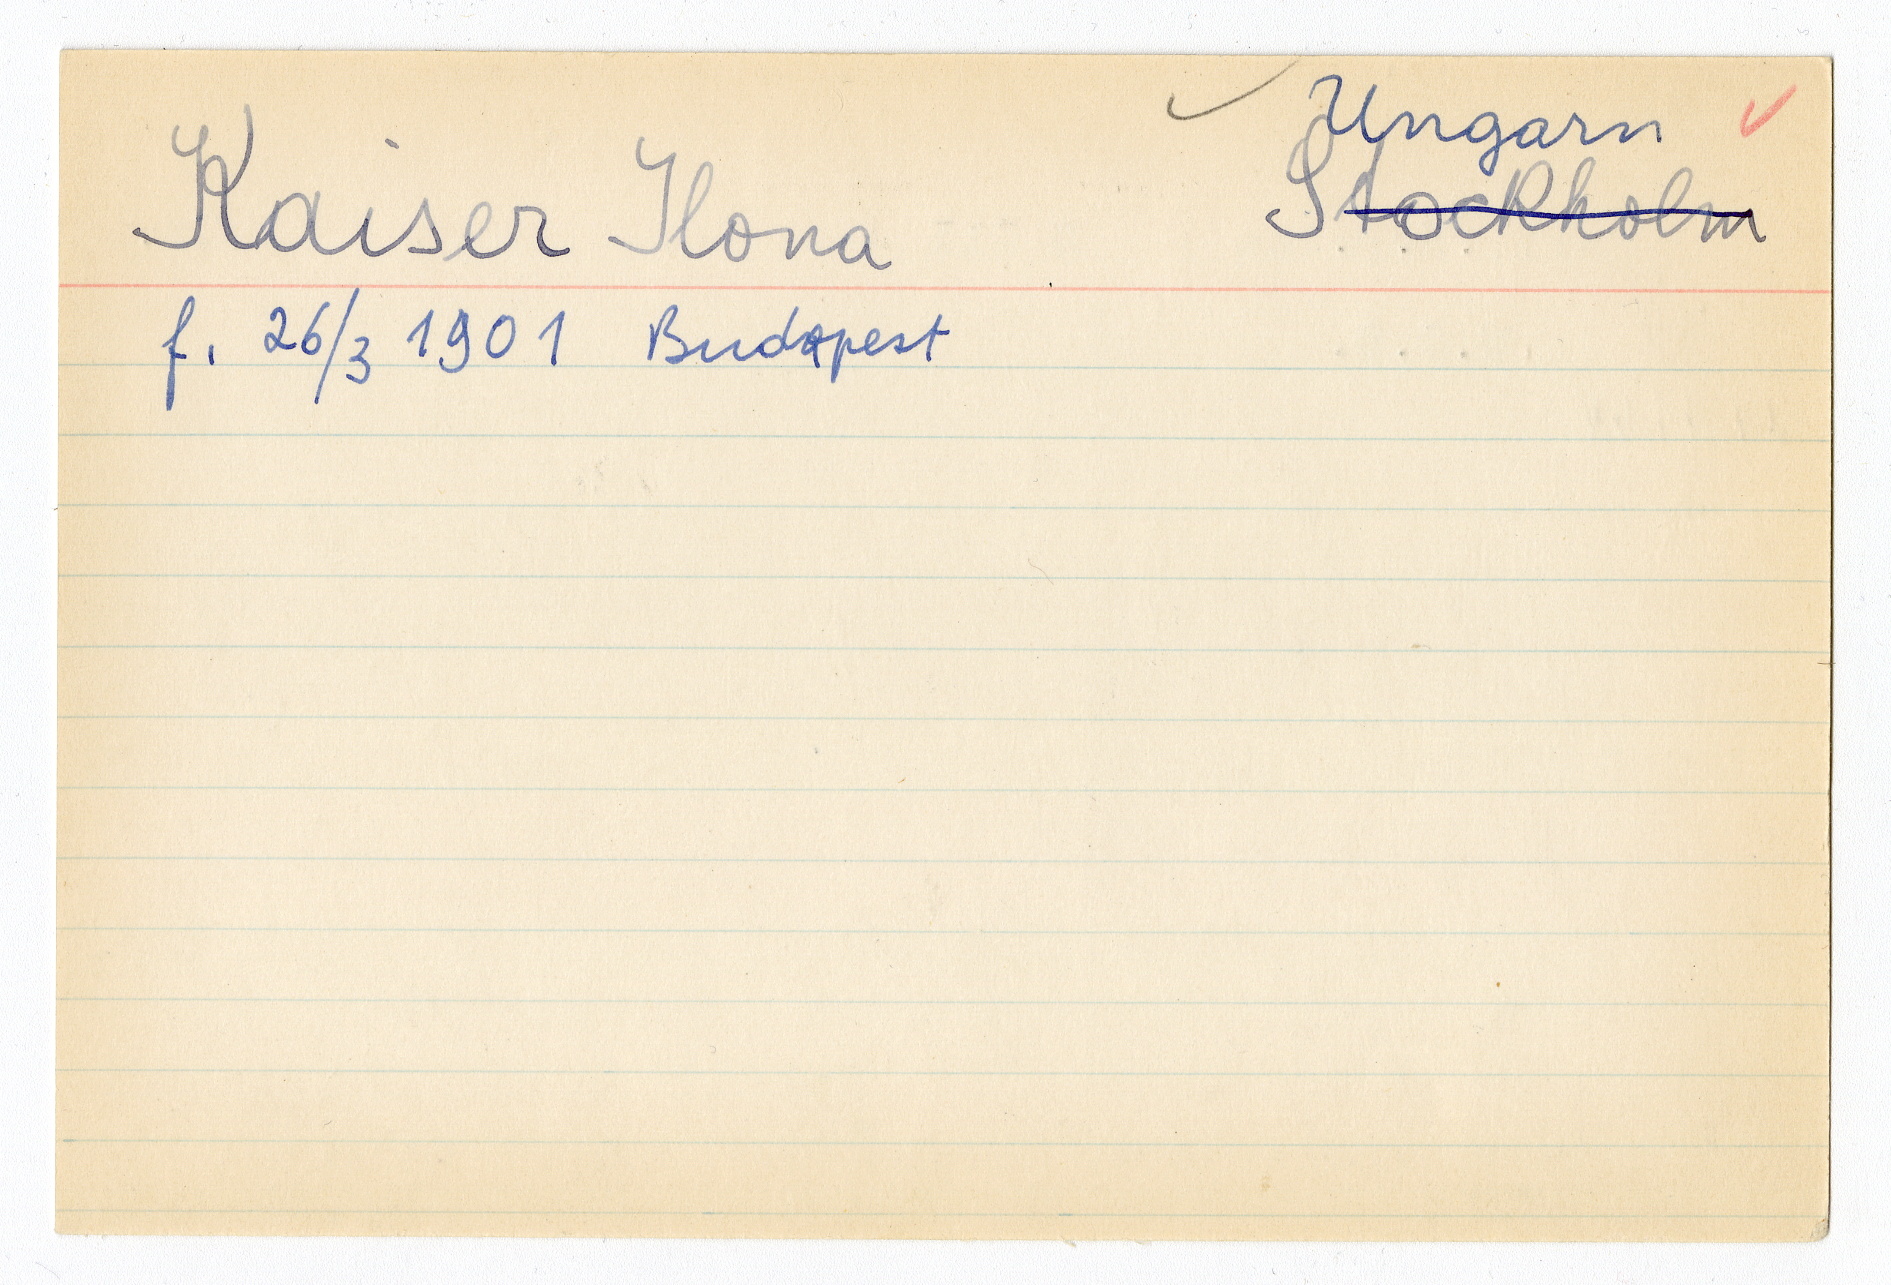 Ungarn
Kaiser Ilona Stockholm
f. 26/3 1901 Budapest